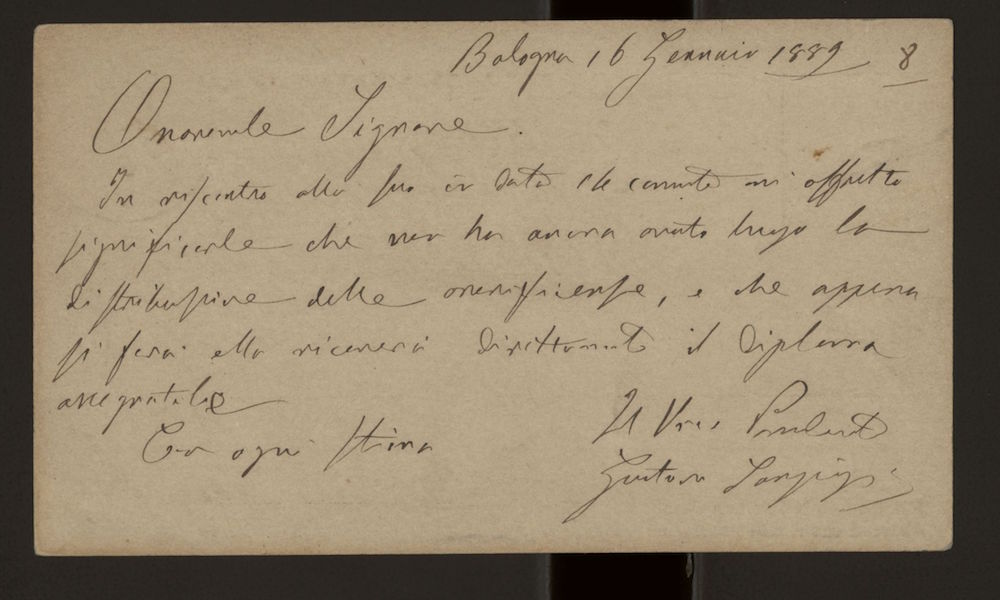 Bologna 16 Gennaio 1889 8
Onorevole Signore.
In riscontro alla sua in data 14 corrente mi affretto
significarle che non ha ancora avuto luogo la
distribuzione delle onorificenze, e che appena
si farà ella riceverà direttamente il diploma
assegnatole
Con ogni stima
Il Vice Presidente
Gustavo